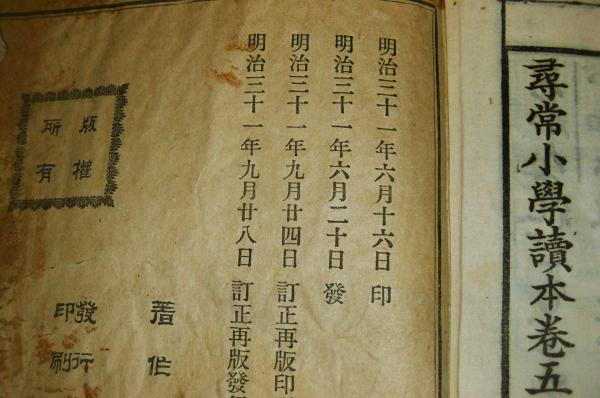 尋常小學讀本卷五
明治三十一年六月十六日 印
明治三十一年六月二十日 發
明治三十一年九月廿四日 訂正再版印
明治三十一年九月廿八日 訂正再版發
著作
發行
印刷
版權
所有